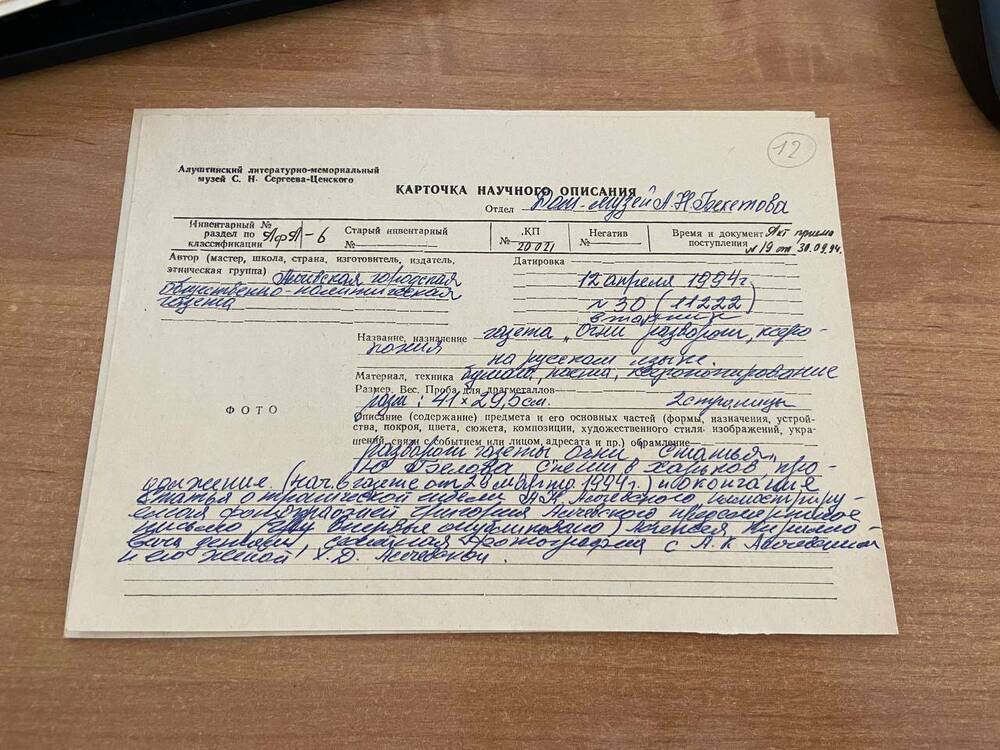 12
Алуштинский литературно-мемориальный
музей С. Н. Сергеева-Ценского
КАРТОЧКА НАУЧНОГО ОПИСАНИЯ
Отдел Дом-музей А.Н.Бекетова
Инвентарный №
раздел по
классификации АфЛ-6
Старый инвентарный
№
КП
№ 20021
Негатив
№
Время и документ Акт приема
поступления №19 от 30.09.94.
Автор (мастер, школа, страна, изготовитель, издатель,
этническая группа) городская
общественно-политическая
газета
Датировка
12 апреля 1994г
№ 30 (11222)
вторник
Название, назначение газета "Огни разворот, ксеро-
копия на русском языке.
Материал, техника бумага, паста, ксерокопирование
Размер. Вес. Проба для драгметаллов
разм: 41×29,5см. 2 страницы
ФОТО
Описание (содержание) предмета и его основных частей (формы, назначения, устрой-
ства, покроя, цвета, сюжета, композиции, художественного стиля изображений, укра-
шений, связи с событием или лицом, адресата и пр.) обрамление
разворот газеты огни. Статья
Ю Белова Спеши в Харьков про-
должение. (нач. в газете от 26 марта 1994г.) и окончание
статья о трагической гибели А.К. Алчевского иллюстриру-
емая фотографией Григория Алчевского предсмертное
письмо впервые опубликовано) Алексея Кирилло-
вича фотография с А. К Алчевским
и его женой, Х.Д. Алчевской.